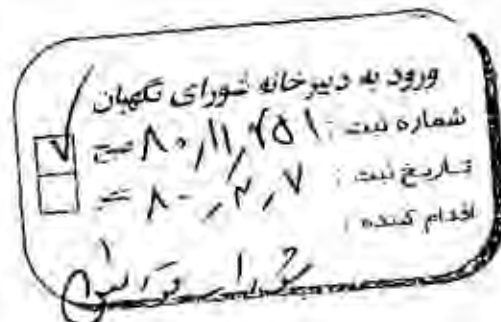 ورود به دبیرخانه شورای نگهبان
شماره ثبت : ۸۰٫۱۱٫۲۵۱ صبح
تاریخ ثبت : ۸۰٫۲٫۷
اقدام کننده :